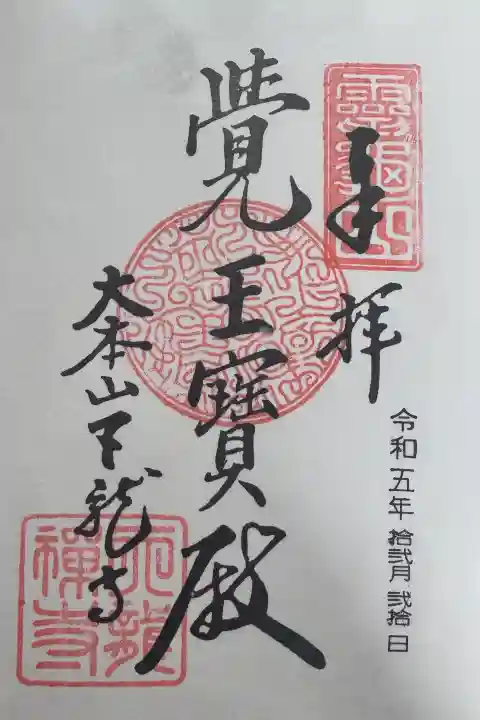 靈龜山
奉拝
令和五年 拾弐月 弐拾日
覺王寶殿
大本山天龍寺
天龍
禪寺